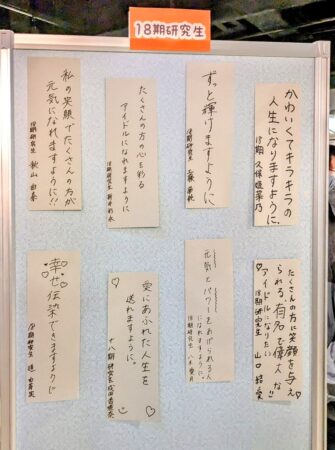 18期研究生
かわいくてキラキラの
人生になりますように。
18期 久保姫菜乃
ずっと輝けますように
18期研究生
たくさんの方の心を彩る
アイドルになれますように
18期研究生 新井彩永
私の笑顔でたくさんの方が
元気になれますように!!
18期研究生 秋山由奈
たくさんの方に笑顔を与え
られる、有名で偉大な
アイドルになりたい!!
18期研究生 山口結愛
元気とパワーをあげられる人
になれますように
18期研究生 八木愛月
愛にあふれた人生を
送れますように。
十八期研究生 成田香姫奈
幸せ伝染できますように
18期研究生 迫由芽実